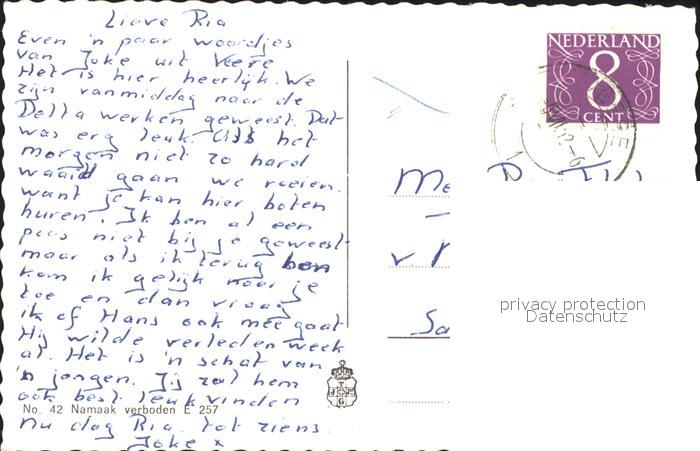 Lieve Ria
Even 'n paar woordjes
van Joke uit Veere
Het is hier heerlijk. We
zijn vanmiddag naar de
Delta werken geweest. Dat
was erg leuk. Als het
morgen niet zo hard
waaid gaan we roeien.
want je kan hier boten
huren. Ik ben al een
poos niet bij je geweest
maar als ik terug ben
kom ik gelijk naar je
toe en dan vraag
ik of Hans ook mee gaat
Hij wilde verleden week
al. Het is 'n schat van
'n jongen. Jij zal hem
ook best leuk vinden
No. 42 Namaak verboden E 257
nu dag Ria. tot ziens.
Joke x
NEDERLAND
8
CENT
privacy protection
Datenschutz